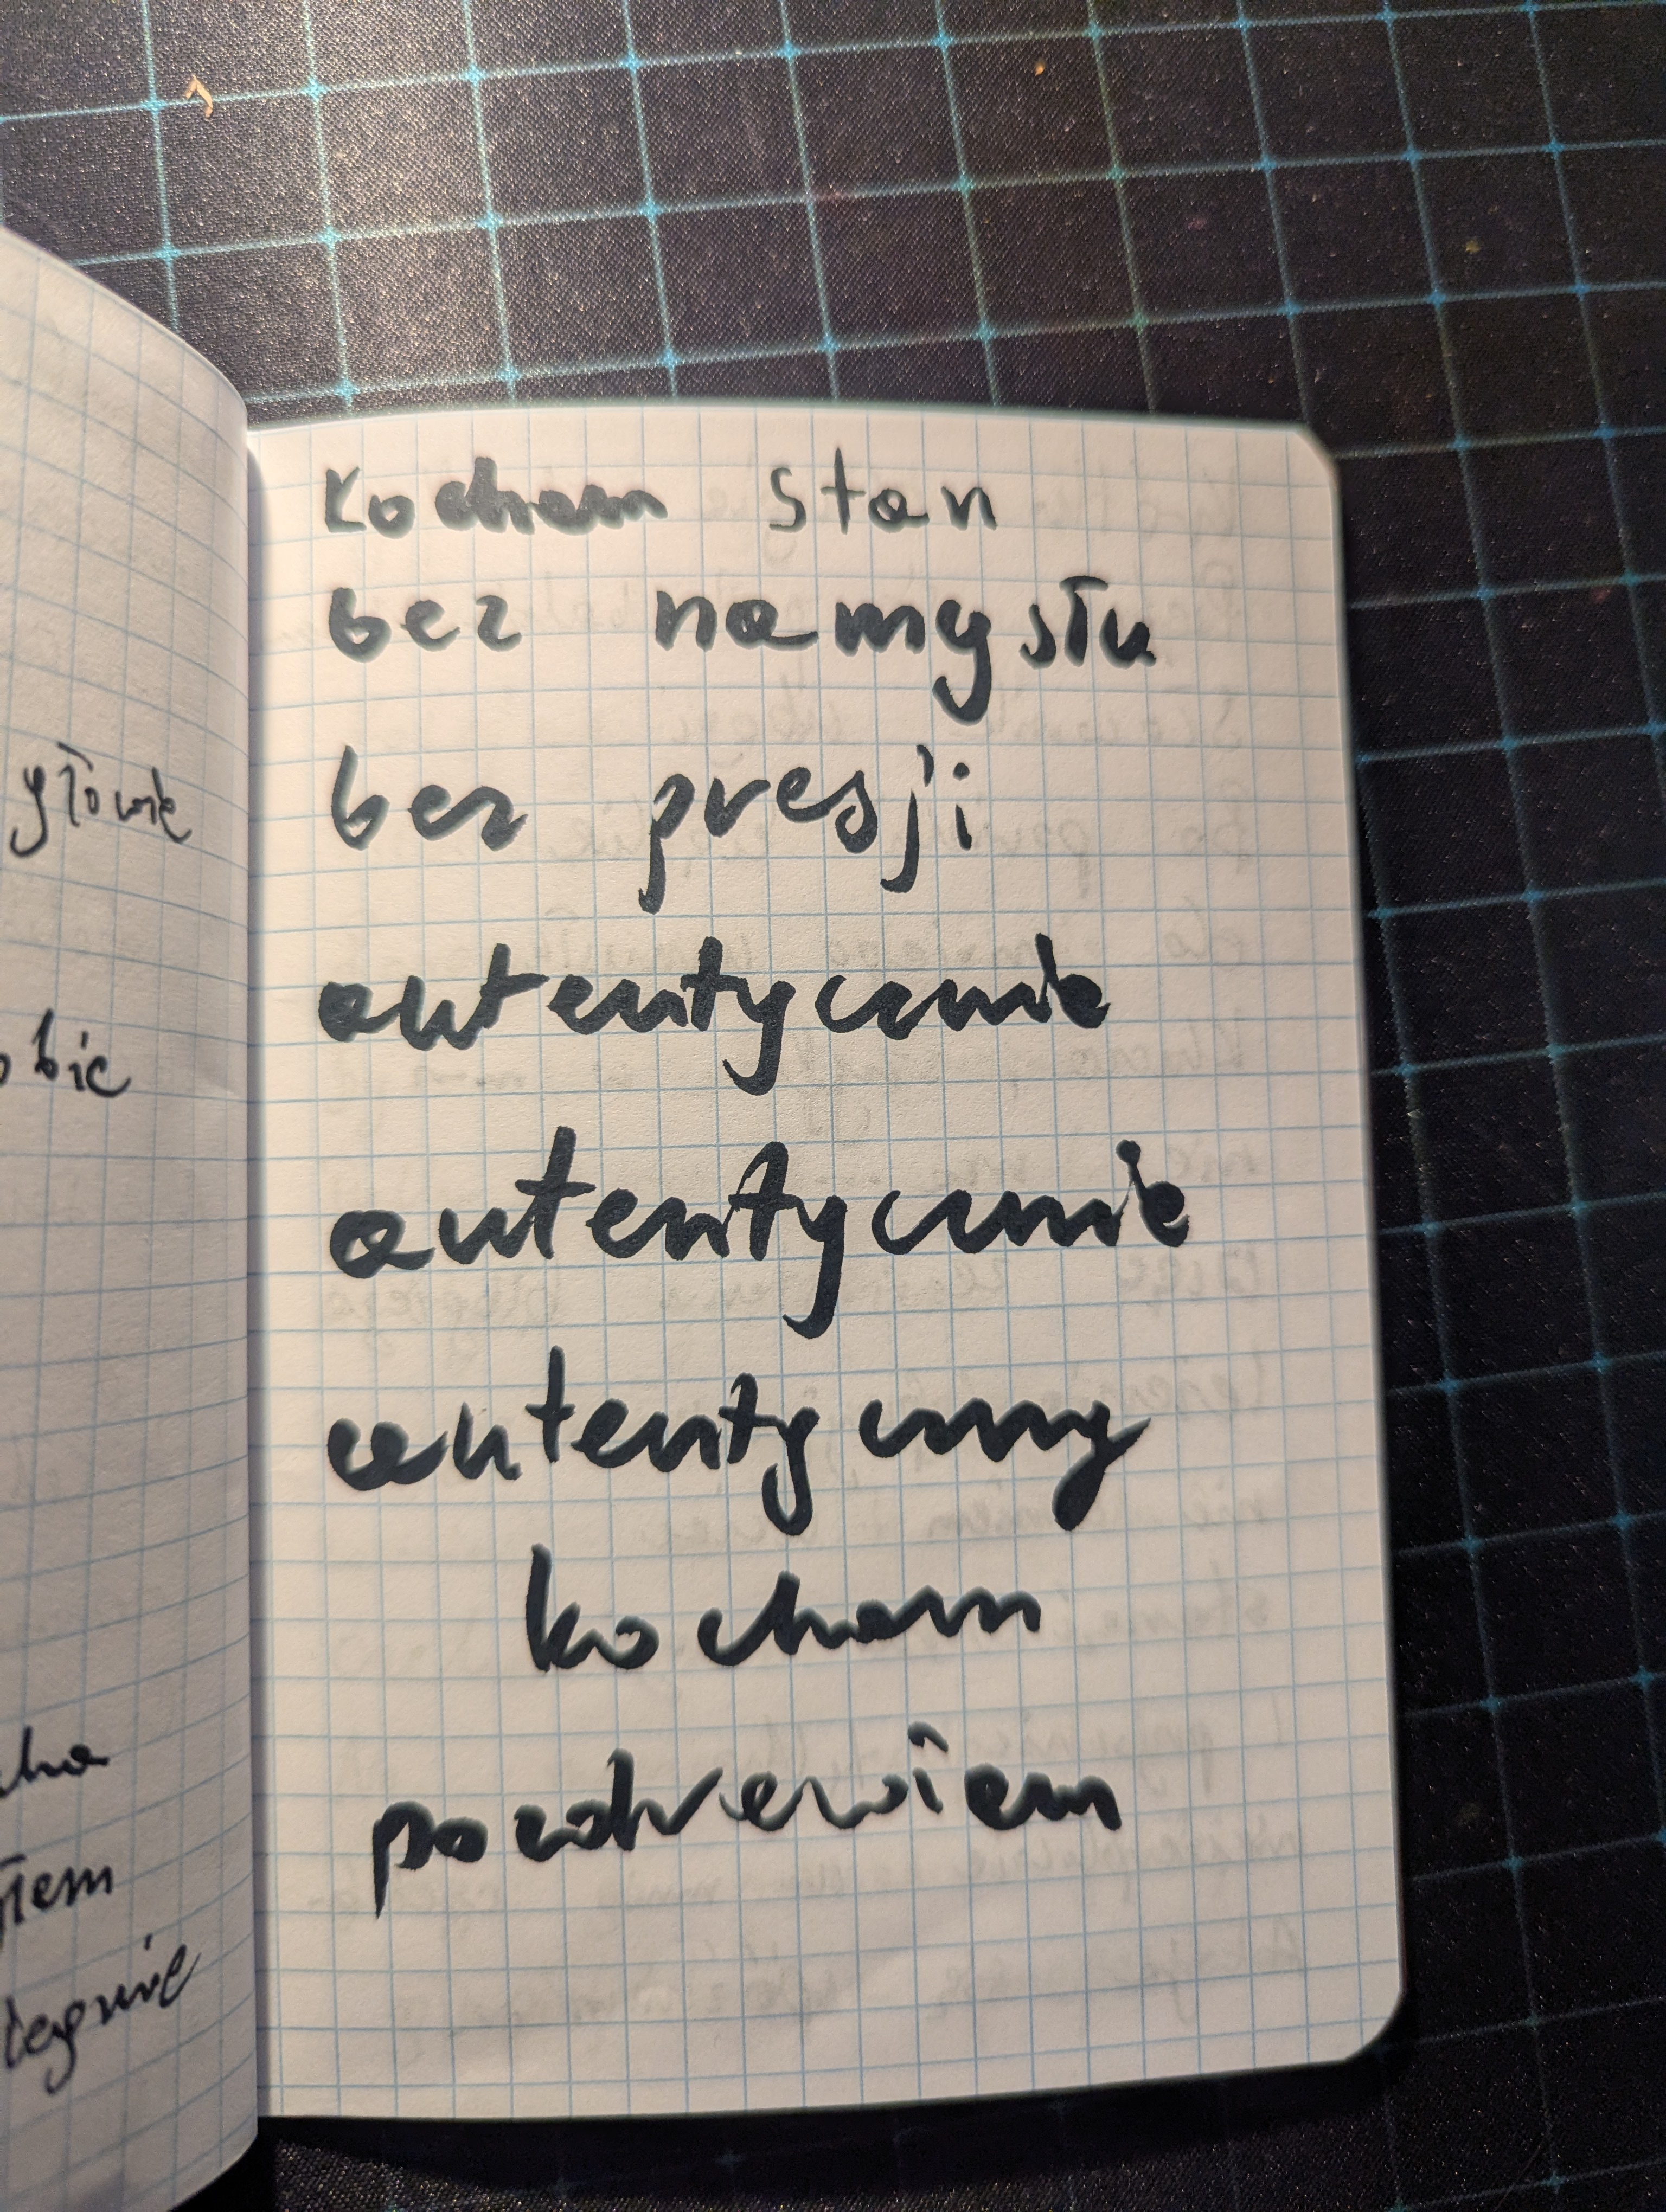 głowie
obie
cha
łem
Kocham stan
bez namysłu
bez presji
autentycznie
autentycznie
autentyczny
kocham
pozdrawiam